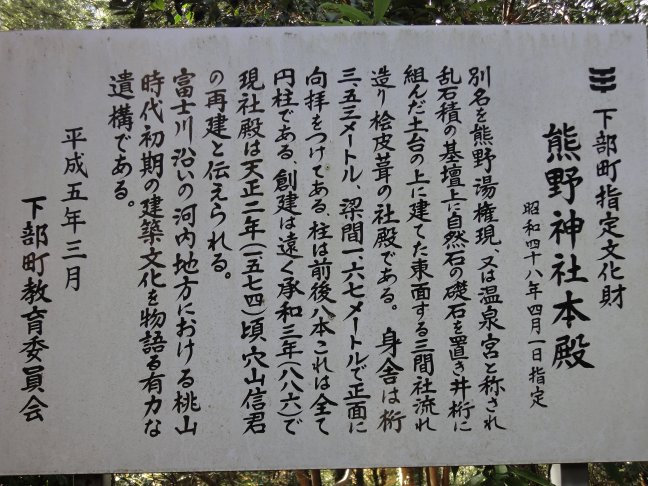 下部町指定文化財
熊野神社本殿
昭和四十八年四月一日指定
別名を熊野湯権現、又は温泉宮と称され
乱石積の基壇上に自然石の礎石を置き井桁に
組んだ土台の上に建てた東面する三間社流れ
造り桧皮葺の社殿である。身舎は桁
三、五三メートル、梁間一、六七メートルで正面に
向拝をつけてある、柱は前後八本これは全て
円柱である、創建は遠く承和三年(八八六)で
現社殿は天正二年(一五七四)頃穴山信君
の再建と伝えられる。
富士川沿いの河内地方における桃山
時代初期の建築文化を物語る有力な
遺構である。
平成五年三月
下部町教育委員会